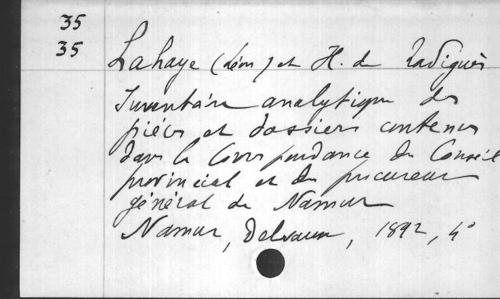 35
35
Lahaye (Léon) et H. de Radiguès
Inventaire analytique des
pièces et dossiers contenus
dans la Correspondance du Conseil
provincial et du procureur
général de Namur
Namur, Delvaux, 1892, 4°